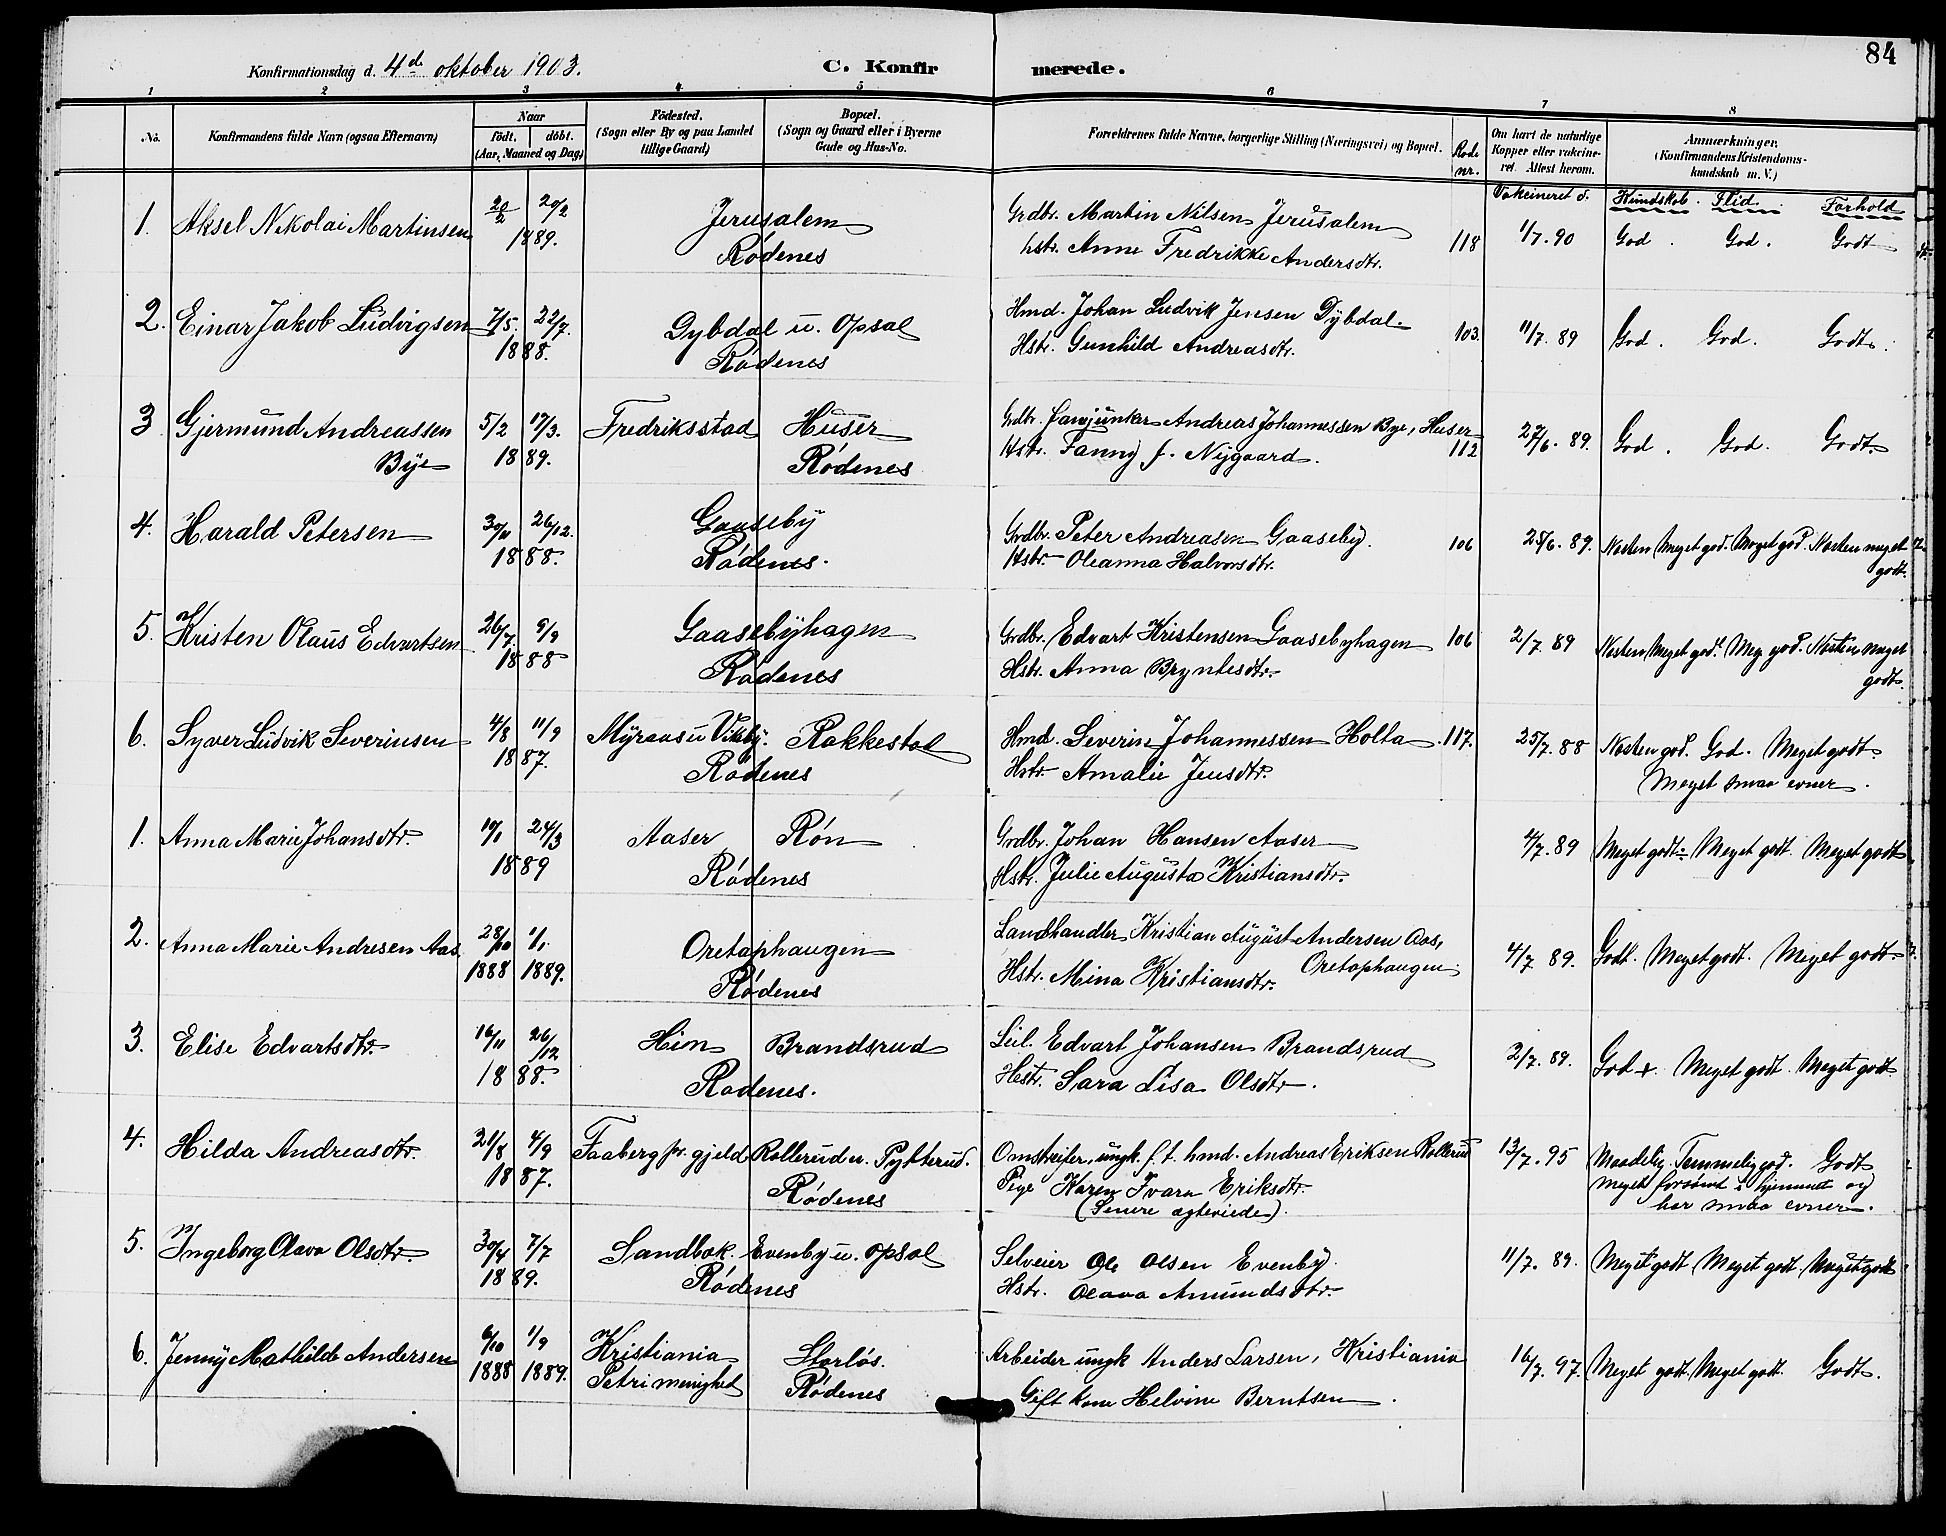 84
Konfirmationsdag d. 4de oktober 1903. C. Konfirmerede.
1 2 3 4 5 6 7 8
No. Konfirmandens fulde Navn (ogsaa Efternavn) Naar født, døbt. (Aar, Maaned og Dag) Fødested. (Sogn eller By og paa Landet tillige Gaard) Bopæl. (Sogn og Gaard eller i Byerne Gade og Hus-No. Forældrenes fulde Navne, borgerlige Stilling (Næringsvei) og Bopæl. Rode nr. Om havt de naturlige Kopper eller vakcineret. Attest herom. Anmærkninger. (Konfirmandens Kristendomskundskab m. V.)
Vakcineret d. Kundskab. Flid. Forhold
1. Aksel Nikolai Martinsen 20/2 20/2 1889. Jerusalem Grdbr. Martin Nilsen Jerusalem 118 1/7. 90 God. God. Godt
Rødenes hstr. Anne Fredrikke Andersdtr.
2. Einar Jakob Ludvigsen 7/5. 22/7. 1888. Dybdal u. Opsal Hmd. Johan Ludvik Jensen Dybdal 103. 11/7. 89 God. God. Godt.
Rødenes Hstr. Gunhild Andreasdtr.
3 Gjermund Andreassen 5/2 17/3. 1889. Fredriksstad Huser Grdbr. fanejunker Andreas Johannessen Bye, Huser 112 27/6. 89. God. God. Godt.
Bye Rødenes Hstr. Fanny f. Nygaard.
4. Harald Petersen 30/11 26/12. 1888. Gaaseby Grdbr. Peter Andreasen Gaaseby. 106 25/6. 89. Næsten Meget god. Meget god. Næsten meget godt.
Rødenes. Hstr. Oleanna Halvorsdtr.
5. Kristen Olaus Edvartsen 26/7. 9/9 1888 Gaasebyhagen Grdbr. Edvart Kristensen Gaasebyhagen 106 2/7. 89 Næsten Meget god. Meg. god. Næsten meget godt.
Rødenes Hstr. Anna Bryntesdtr.
6. Syver Ludvik Severinsen 4/8 11/9 1887. Myraas u Viseby. Rakkestad Hmd. Severin Johannessen Holta 117. 25/7. 88 Næsten god. God. Meget godt.
Rødenes Hstr. Amalie Jensdtr. Meget smaa evner.
1. Anna Marie Johansdtr. 24/3 1889 Aaser Røn Grdbr. Johan Hansen Aaser 4/7. 89 Meget godt. Meget godt. Meget godt
Rødenes Hstr. Julie Augusta Kristiansdtr.
2. Anna Marie Andresen Aas. 28/10 1888 1/1 1889. Oretaphaugen Landhandler Kristian August Andersen Aas, Oretaphaugen 4/7 89. Godt. Meget godt. Meget godt.
Rødenes Hstr. Mina Kristiansdtr.
3. Elise Edvartsdtr. 16/11 26/12 1888. Hion Brandsrud Leil. Edvart Johansen Brandsrud 2/7. 89. God +. Meget godt. Meget godt
Rødenes. Hstr. Sara Lisa Olsdtr.
4. Hilda Andreasdtr. 21/8 4/9 1887. Faaberg pr.gjeld Rollerud u. Pytterud. Omstreifer, ungk. f.t. hmd. Andreas Eriksen Rollerud 13/7. 95 Maadelig. Temmelig god. Godt
Rødenes Pige Karen Ivara Eriksdtr. meget forsømt i hjemmet og
(Senere ægteviede). har smaa evner.
5. Ingeborg Olava Olsdtr. 30/4 7/7 1889. Sandbæk. Evenby u. Opsal Selveier Ole Olsen Evenby. 11/7. 89. Meget godt. Meget godt. Meget godt
Rødenes Hstr. Olava Amundsdtr.
6. Jenny Mathilde Andersen 6/10 1888 1/9 1889. Kristiania Storløs. Arbeider ungk Anders Larsen, Kristiania 16/7. 97. Meget godt. Meget godt. Godt.
Petri menighed Rødenes Gift kone Helvine Berntsen.